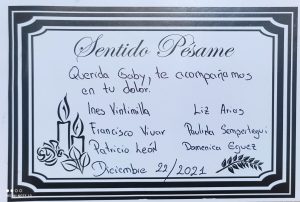 Sentido Pésame
Querida Gaby, te acompañamos
en tu dolor.
Ines Vintimilla Liz Arias
Francisco Vivar Paulina Sempertegui
Patricio León Domenica Eguez
Diciembre 22/2021